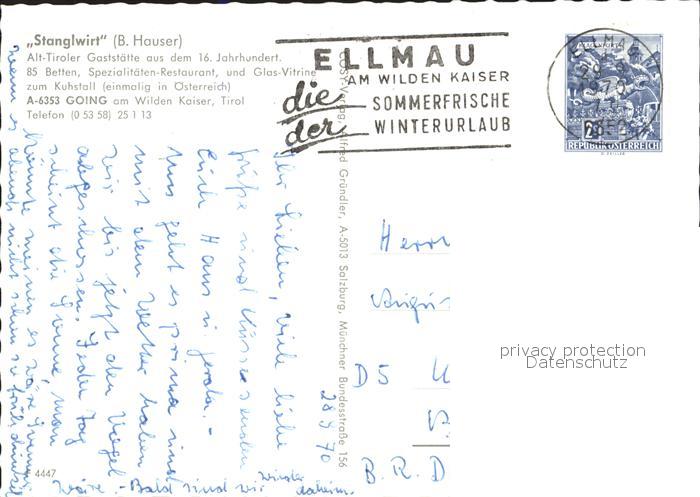 „Stanglwirt" (B. Hauser)
Alt-Tiroler Gaststätte aus dem 16. Jahrhundert.
85 Betten, Spezialitäten-Restaurant, und Glas-Vitrine
zum Kuhstall (einmalig in Österreich)
A-6353 GOING am Wilden Kaiser, Tirol
Telefon (0 53 58) 25 1 13
ELLMAU
AM WILDEN KAISER
die SOMMERFRISCHE
der WINTERURLAUB
REPUBLIK ÖSTERREICH
Alfred Gründler, A-5013 Salzburg, Münchner Bundesstraße 156
28.9.70
Ihr Lieben, viele liebe
Grüße und Küsse senden
Euch Hans u. Gerda.-
Uns geht es prima und
mit dem Wetter haben
wir bis jetzt den Vogel
abgeschossen. Jeden Tag
scheint die Sonne, man
könnte meinen es wäre
wenn es abends nicht schon so früh dunkel
wäre. - Bald sind wir wieder daheim.
Herrn
D 5
B.R.D
4447
privacy protection
Datenschutz